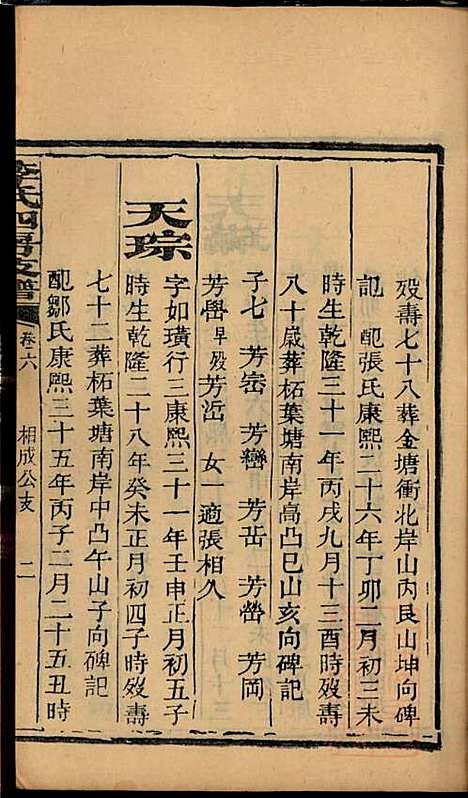 殁壽七十八葬金塘衝北岸山丙艮山坤向碑
記　配張氏康熙二十六年丁卯二月初三未
時生乾隆三十一年丙戌九月十三酉時殁壽
八十歲葬柘葉塘南岸高凸巳山亥向碑記
子七　芳崈　芳巒　芳岳　芳嶨　芳岡
芳嚳早殁芳岴　女一適張相久
天琮
字如璜行三康熙三十一年壬申正月初五子
時生乾隆二十八年癸未正月初四子時殁壽
七十二葬柘葉塘南岸中凸午山子向碑記
配鄒氏康熙三十五年丙子二月二十五丑時
李氏四房支譜
卷六
相成公支
二